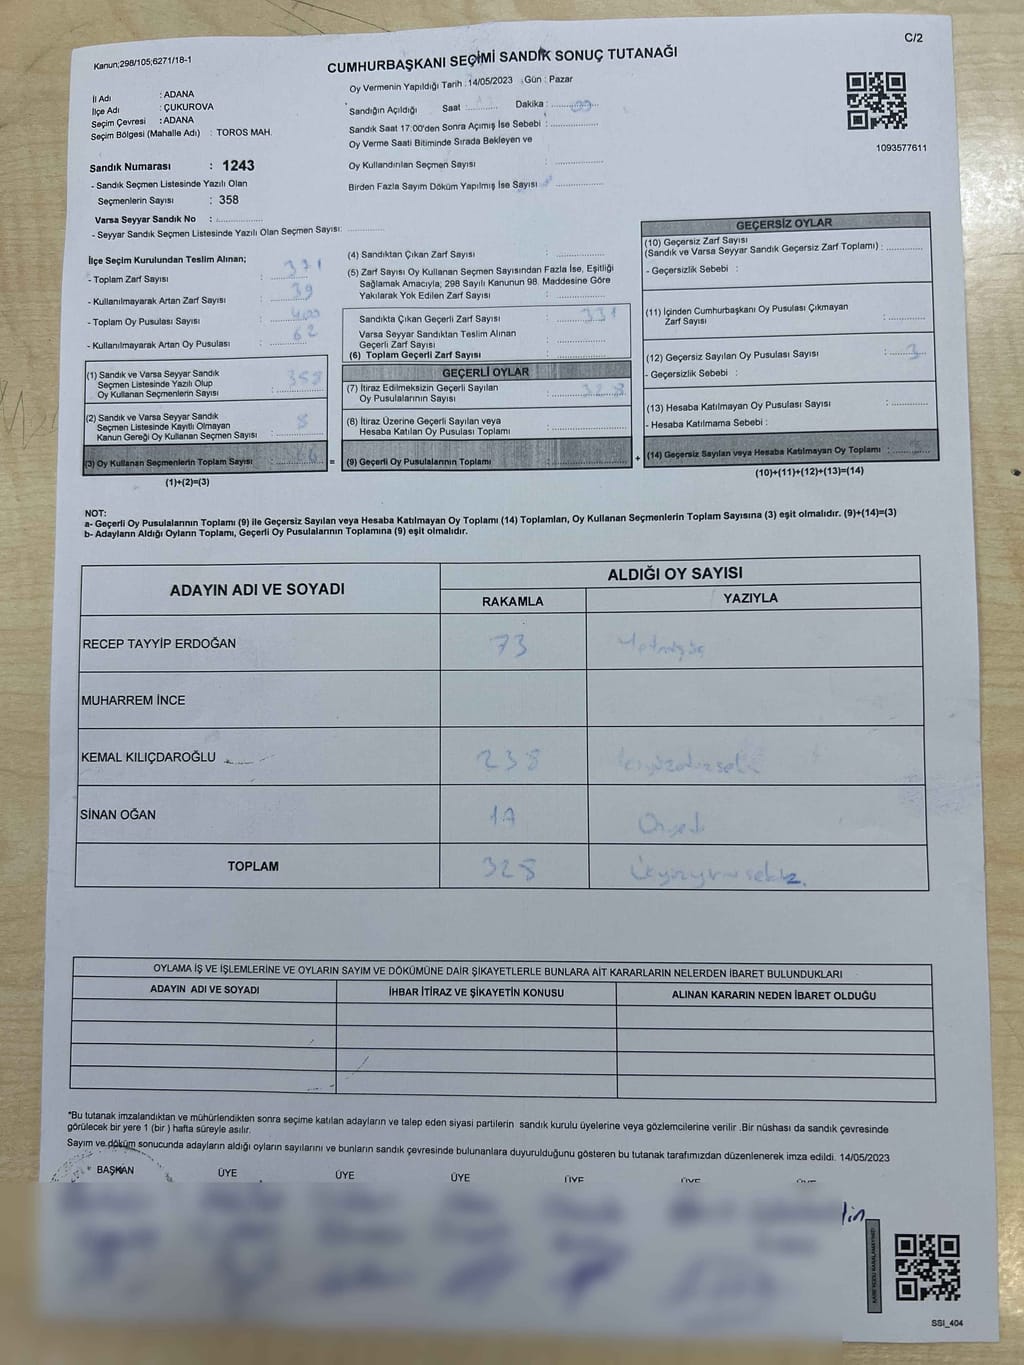 C/2
Kanun;298/105;6271/18-1
CUMHURBAŞKANI SEÇİMİ SANDIK SONUÇ TUTANAĞI
İl Adı : ADANA
İlçe Adı : ÇUKUROVA
Seçim Çevresi : ADANA
Seçim Bölgesi (Mahalle Adı) : TOROS MAH.
Sandık Numarası : 1243
- Sandık Seçmen Listesinde Yazılı Olan
Seçmenlerin Sayısı : 358
Varsa Seyyar Sandık No :
- Seyyar Sandık Seçmen Listesinde Yazılı Olan Seçmen Sayısı:
Oy Vermenin Yapıldığı Tarih : 14/05/2023 Gün : Pazar
Sandığın Açıldığı Saat : Dakika : 00
Sandık Saat 17:00'den Sonra Açımış İse Sebebi :
Oy Verme Saati Bitiminde Sırada Bekleyen ve
Oy Kullandırılan Seçmen Sayısı :
Birden Fazla Sayım Döküm Yapılmış İse Sayısı :
1093577611
İlçe Seçim Kurulundan Teslim Alınan;
- Toplam Zarf Sayısı :
- Kullanılmayarak Artan Zarf Sayısı : 39
- Toplam Oy Pusulası Sayısı : 400
- Kullanılmayarak Artan Oy Pusulası : 62
(1) Sandık ve Varsa Seyyar Sandık
Seçmen Listesinde Yazılı Olup
Oy Kullanan Seçmenlerin Sayısı :
(2) Sandık ve Varsa Seyyar Sandık
Seçmen Listesinde Kayıtlı Olmayan
Kanun Gereği Oy Kullanan Seçmen Sayısı : 8
(3) Oy Kullanan Seçmenlerin Toplam Sayısı : =
(1)+(2)=(3)
(4) Sandıktan Çıkan Zarf Sayısı :
(5) Zarf Sayısı Oy Kullanan Seçmen Sayısından Fazla İse, Eşitliği
Sağlamak Amacıyla; 298 Sayılı Kanunun 98. Maddesine Göre
Yakılarak Yok Edilen Zarf Sayısı :
Sandıkta Çıkan Geçerli Zarf Sayısı : 331
Varsa Seyyar Sandıktan Teslim Alınan
Geçerli Zarf Sayısı :
(6) Toplam Geçerli Zarf Sayısı :
GEÇERLİ OYLAR
(7) İtiraz Edilmeksizin Geçerli Sayılan
Oy Pusulalarının Sayısı : 328
(8) İtiraz Üzerine Geçerli Sayılan veya
Hesaba Katılan Oy Pusulası Toplamı :
(9) Geçerli Oy Pusulalarının Toplamı : +
GEÇERSİZ OYLAR
(10) Geçersiz Zarf Sayısı
(Sandık ve Varsa Seyyar Sandık Geçersiz Zarf Toplamı) :
- Geçersizlik Sebebi :
(11) İçinden Cumhurbaşkanı Oy Pusulası Çıkmayan
Zarf Sayısı :
(12) Geçersiz Sayılan Oy Pusulası Sayısı : 3
- Geçersizlik Sebebi :
(13) Hesaba Katılmayan Oy Pusulası Sayısı :
- Hesaba Katılmama Sebebi :
(14) Geçersiz Sayılan veya Hesaba Katılmayan Oy Toplamı :
(10)+(11)+(12)+(13)=(14)
NOT:
a- Geçerli Oy Pusulalarının Toplamı (9) ile Geçersiz Sayılan veya Hesaba Katılmayan Oy Toplamı (14) Toplamları, Oy Kullanan Seçmenlerin Toplam Sayısına (3) eşit olmalıdır. (9)+(14)=(3)
b- Adayların Aldığı Oyların Toplamı, Geçerli Oy Pusulalarının Toplamına (9) eşit olmalıdır.
ADAYIN ADI VE SOYADI
ALDIĞI OY SAYISI
RAKAMLA YAZIYLA
RECEP TAYYİP ERDOĞAN 73 Yetmişüç
MUHARREM İNCE
KEMAL KILIÇDAROĞLU 238
SİNAN OĞAN 17 Onyedi
TOPLAM 328 Üçyüzyirmi sekiz
OYLAMA İŞ VE İŞLEMLERİNE VE OYLARIN SAYIM VE DÖKÜMÜNE DAİR ŞİKAYETLERLE BUNLARA AİT KARARLARIN NELERDEN İBARET BULUNDUKLARI
ADAYIN ADI VE SOYADI İHBAR İTİRAZ VE ŞİKAYETİN KONUSU ALINAN KARARIN NEDEN İBARET OLDUĞU
*Bu tutanak imzalandıktan ve mühürlendikten sonra seçime katılan adayların ve talep eden siyasi partilerin sandık kurulu üyelerine veya gözlemcilerine verilir .Bir nüshası da sandık çevresinde
görülecek bir yere 1 (bir ) hafta süreyle asılır.
Sayım ve döküm sonucunda adayların aldığı oyların sayılarını ve bunların sandık çevresinde bulunanlara duyurulduğunu gösteren bu tutanak tarafımızdan düzenlenerek imza edildi. 14/05/2023
BAŞKAN ÜYE ÜYE ÜYE ÜYE ÜYE ÜYE
SSI_404